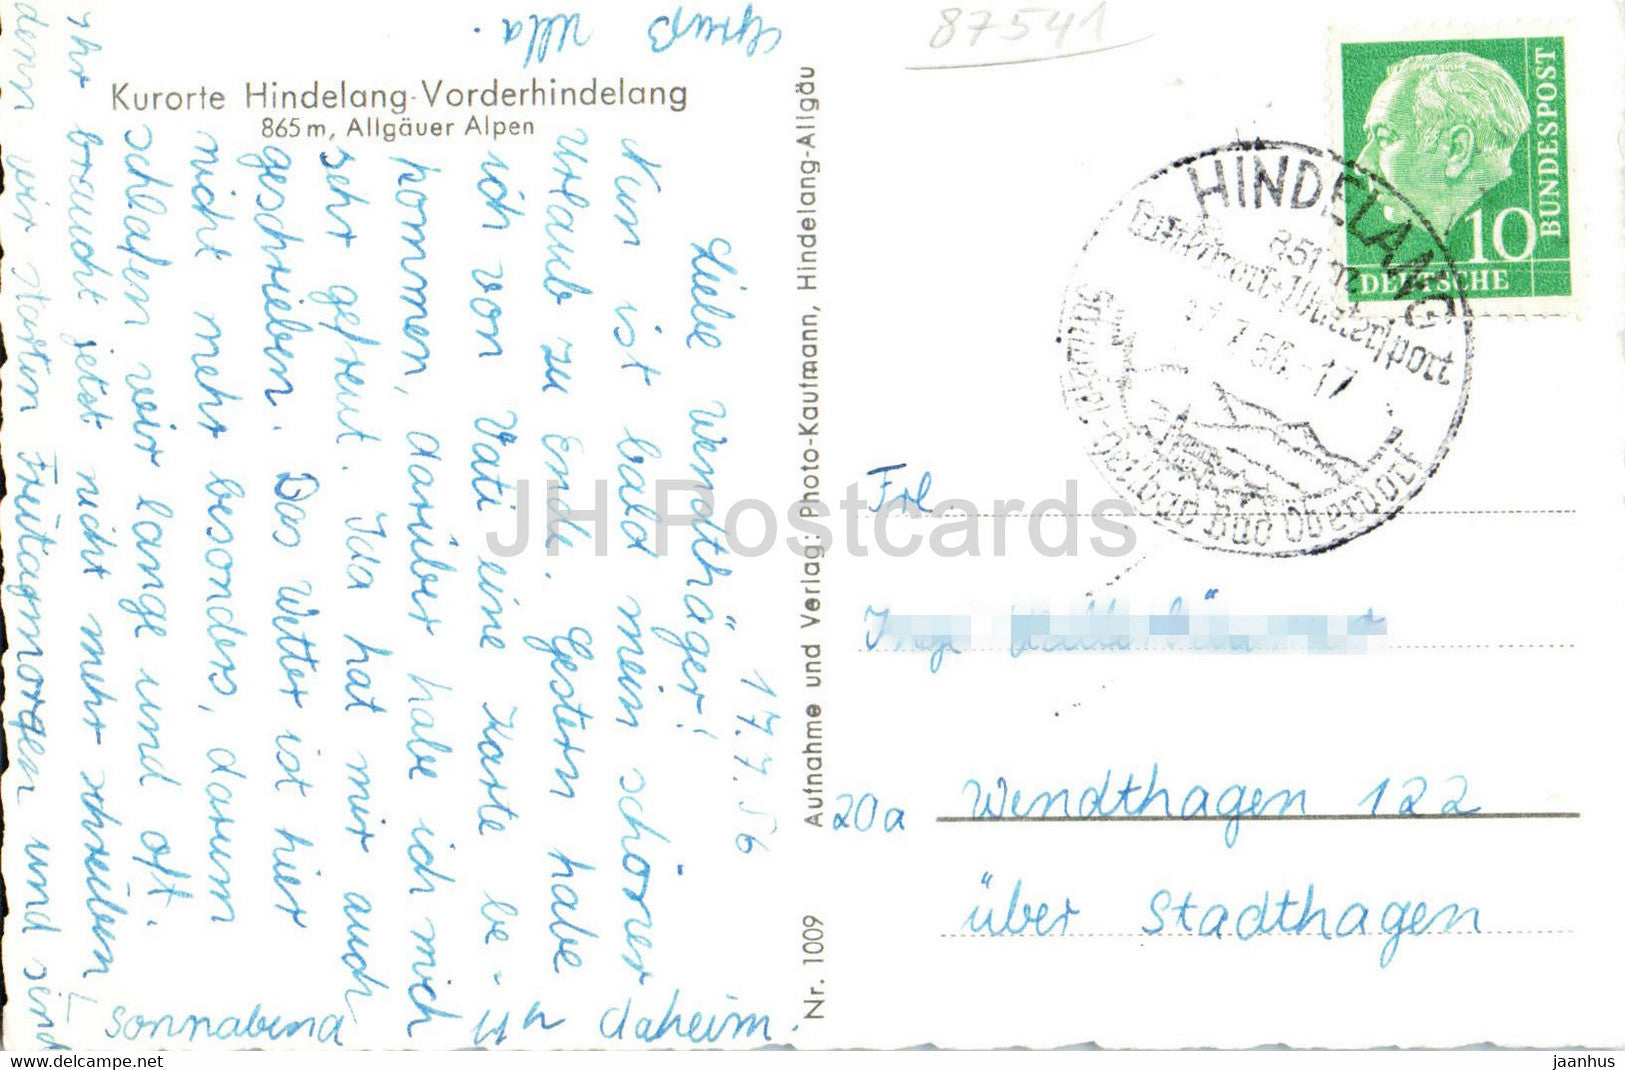 87541
Kurorte Hindelang-Vorderhindelang
865 m, Allgäuer Alpen
17.7.56
Liebe Wendthäger!
Nun ist bald mein schöner
Urlaub zu Ende. Gestern habe
ich von Vati eine Karte be-
kommen, darüber habe ich mich
sehr gefreut. Ida hat mir auch
geschrieben. Das Wetter ist hier
nicht mehr besonders, darum
schlafen wir lange und oft.
Ihr braucht jetzt nicht mehr schreiben,
denn wir starten Freitagmorgen und sind
sonnabend daheim.
Gruß
Ulla.
Aufnahme und Verlag: Photo-Kaufmann, Hindelang-Allgäu
Nr. 1009
DEUTSCHE
BUNDESPOST
10
HINDELANG
Bad Oberdorf
Frl.
Inge
20a Wendthagen 122
über Stadthagen
JH Postcards
delcampe.net
jaanhus